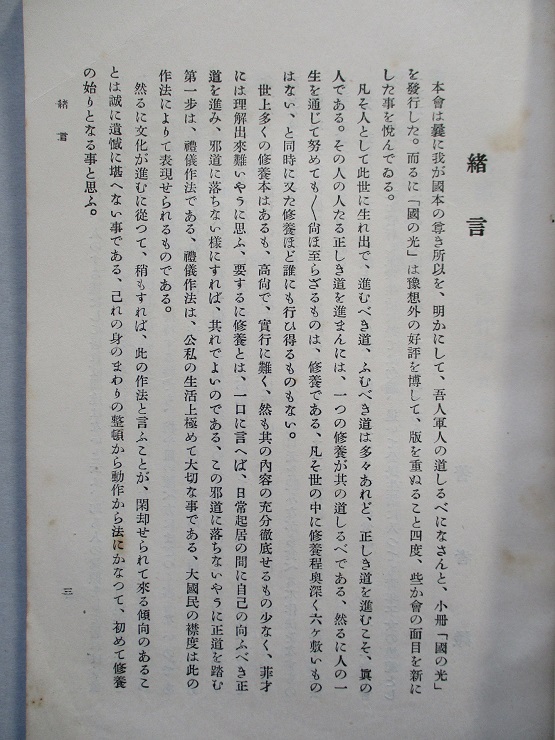 緒言
本會は曩に我が國本の尊き所以を、明かにして、吾人軍人の道しるべになさんと、小册「國の光」
を發行した。而るに「國の光」は豫想外の好評を博して、版を重ぬること四度、些か會の面目を新に
した事を悅んでゐる。
凡そ人として此世に生れ出で、進むべき道、ふむべき道は多々あれど、正しき道を進むこそ、眞の
人である。その人の人たる正しき道を進まんには、一つの修養が其の道しるべである、然るに人の一
生を通じて努めても〳〵尙ほ至らざるものは、修養である、凡そ世の中に修養程奧深く六ヶ敷いもの
はない、と同時に又た修養ほど誰にも行ひ得るものもない。
世上多くの修養本はあるも、高尙で、實行に難く、然も其の內容の充分徹底せるもの少なく、菲才
には理解出來難いやうに思ふ、要するに修養とは、一口に言へば、日常起居の間に自己の向ふべき正
道を進み、邪道に落ちない樣にすれば、其れでよいのである、この邪道に落ちないやうに正道を踏む
第一步は、禮儀作法である、禮儀作法は、公私の生活上極めて大切な事である、大國民の襟度は此の
作法によりて表現せられるものである。
然るに文化が進むに從つて、稍もすれば、此の作法と言ふことが、閑却せられて來る傾向のあるこ
とは誠に遺憾に堪へない事である、己れの身のまわりの整頓から動作から法にかなつて、初めて修養
の始りとなる事と思ふ。
緒言
三